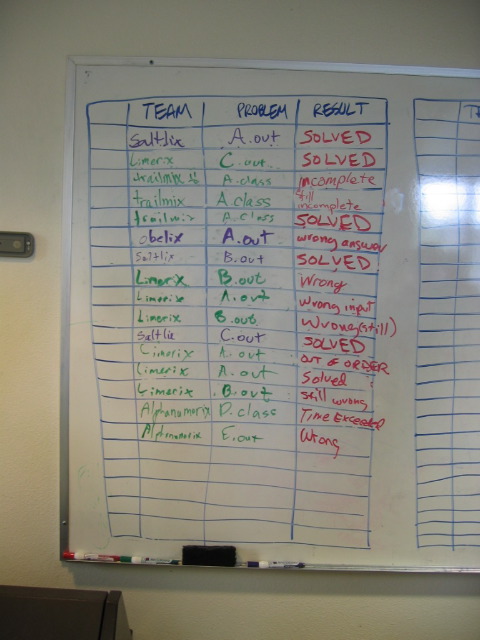 TEAM PROBLEM RESULT
Saltlix A.out SOLVED
Limerix C.out SOLVED
trailmix A.class incomplete
trailmix A.class still incomplete
trailmix A.class SOLVED
obelix A.out wrong answer
Saltlix B.out SOLVED
Limerix B.out Wrong
Limerix A.out Wrong input
Limerix B.out Wrong(still)
Saltlix C.out SOLVED
Limerix A.out OUT OF ORDER
Limerix A.out Solved
Limerix B.out still wrong
Alphanumerix D.class Time Exceeded
Alphanumerix E.out Wrong